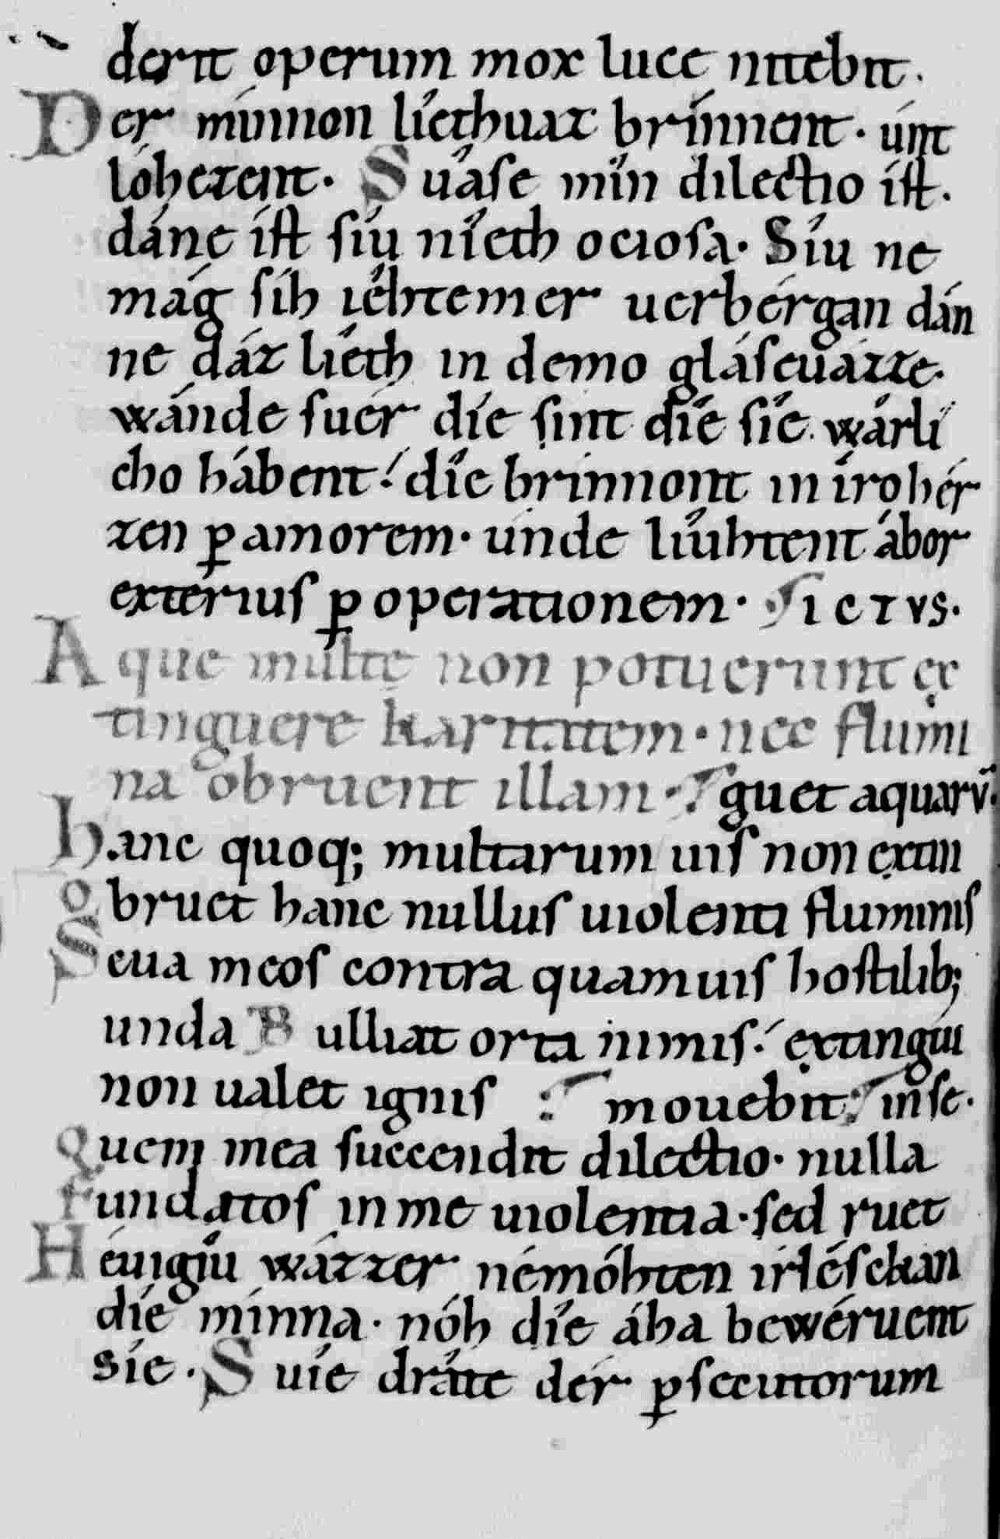 derit operum mox luce nitebit.
Der mínnon líethuaz brínnent. únt
lóhezent. Suáse mîn dilectio íst.
dáne íst síu níeth ociosa. Síu ne
mág síh iêhtemer uerbérgan dán
ne dáz líeth in demo gláseuázze.
wánde suér díe sint díe síe wârli
cho hábent. díe brinnont in íro hér
zen ꝑ amorem. unde líuhtent ábor
exterius ꝑ operationem. Ictvs.
Aque multę non potuerunt ex
tinguere karitatem. nec flumi
na obruent illam. guet aquarū.
hanc quoq; multarum uis non extin
obruet hanc nullus uiolenti fluminis
Seua meos contra quamuis hostilib;
unda Bulliat orta nimis. extingui
non ualet ignis movebit. in se.
Quem mea succendit dilectio. nulla
fundatos in me uiolentia. sed ruet
Héuigíu wázzer némóhten irléskan
díe mínna. nóh díe áha bewéruent
síe. Suíe drâte dér ꝑsecutorum